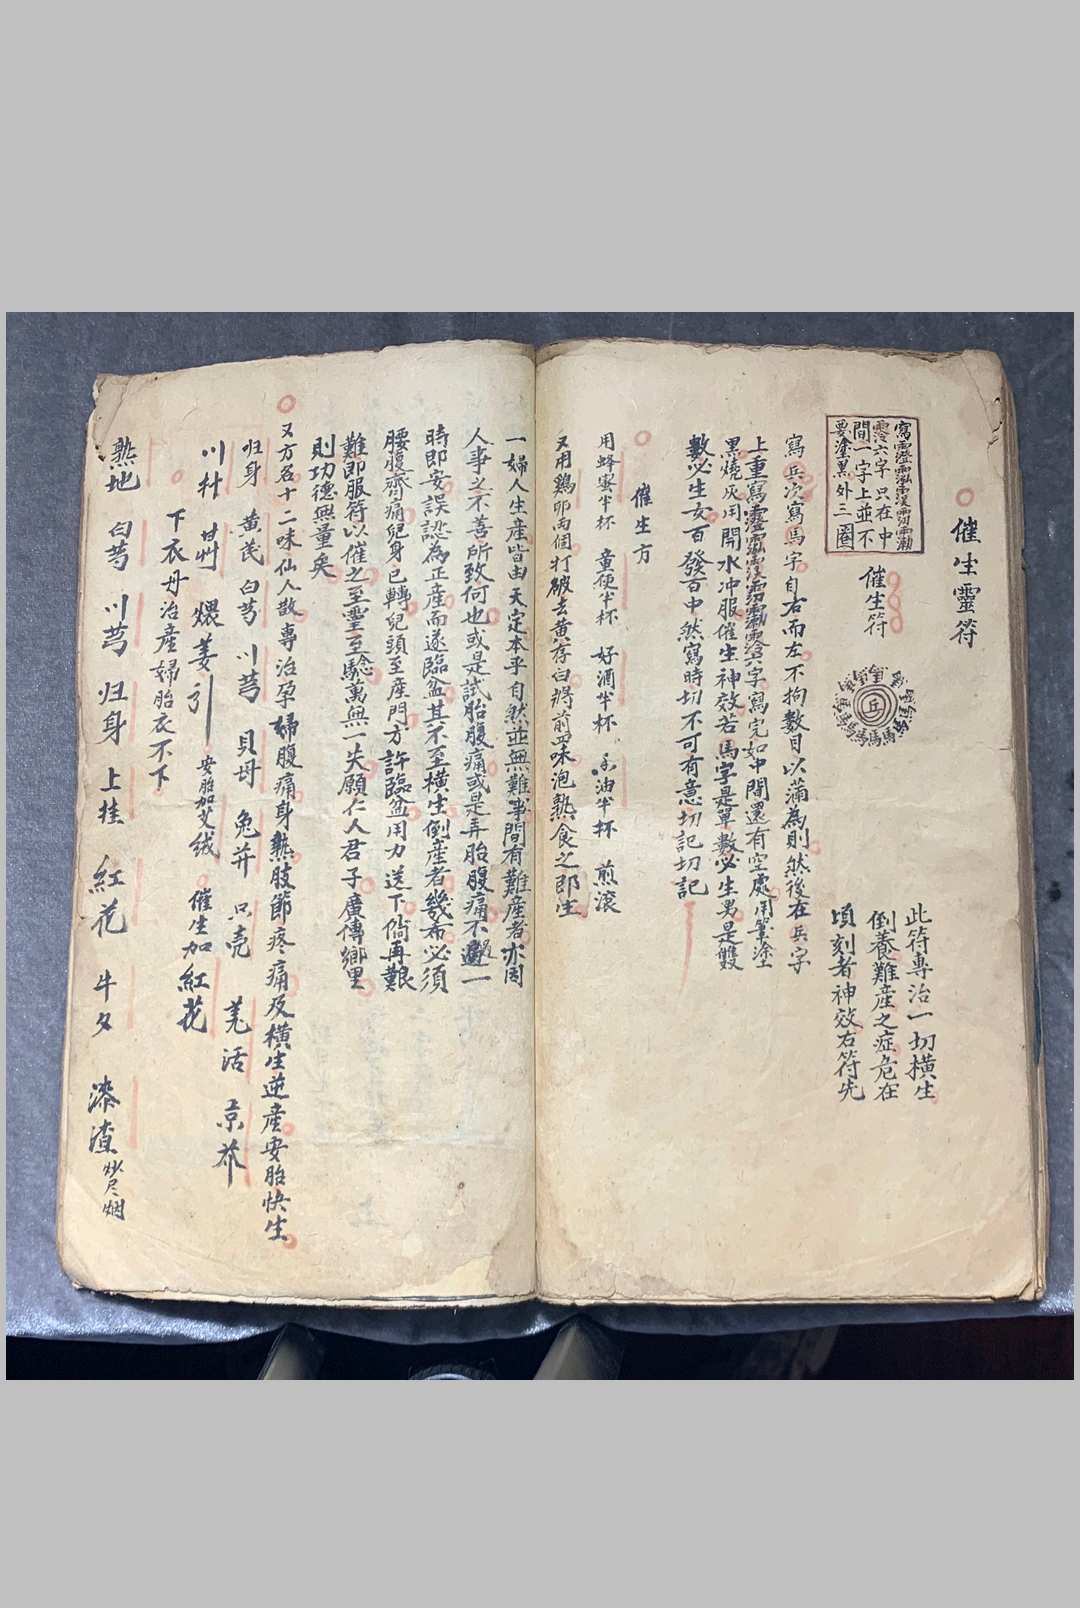 催生靈符
此符專治一切橫生
倒養難產之症危在
頃刻者神效右符先
催生符
六字只在中
間一字上並不
要塗黑外三圈
兵
寫兵次寫馬字自右而左不拘數目以蒲為則然後在兵字
上重寫六字寫完如中間還有空處用筆塗
黑燒灰用開水冲服催生神效若馬字是單數必生男是雙
數必生女百發百中然寫時切不可有意切記切記
催生方
用蜂蜜半杯 童便半杯 好酒半杯 油半杯 煎滾
又用鷄卵兩個打破去黄存白將前四味泡熟食之即生
一婦人生產皆由天定本乎自然並無難事間有難產者亦因
人事之不善所致何也或是試胎腹痛或是弄胎腹痛不一
時即安誤認為正產而遂臨盆其不至橫生倒產者幾希必須
腰腹齊痛兒身已轉兒頭至產門方許臨盆用力送下倘再艱
難即服符以催之至靈至驗萬無一失願仁人君子廣傳鄉里
則功德無量矣
又方名十二味仙人散專治孕婦腹痛身熱肢節疼痛及橫生逆產安胎快生
归身 黄芪 白芍 川芎 貝母 兔幷 只壳 羌活 京芥
川朴 甘艸 煨姜引 安胎加艾绒 催生加紅花
下衣丹治產婦胎衣不下
熟地 白芍 川芎 归身 上桂 紅花 牛夕 漆渣炒尽烟